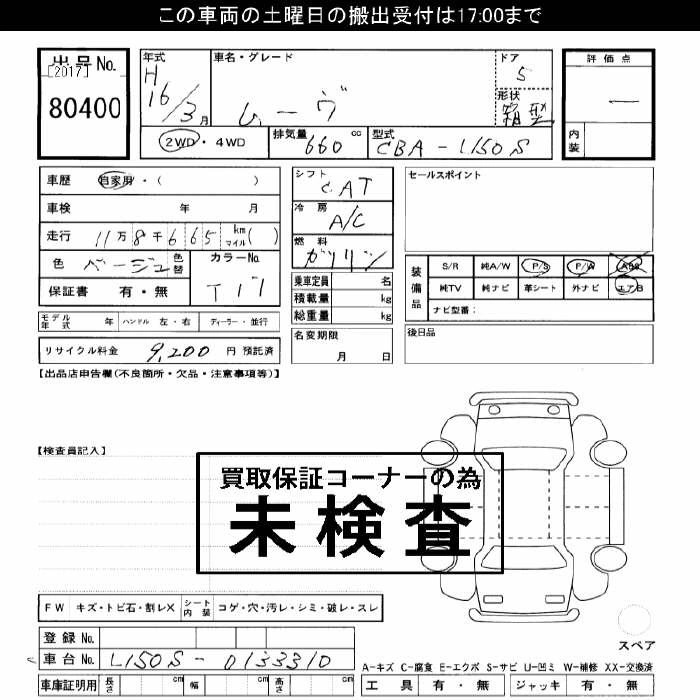 この車両の土曜日の搬出受付は17:00まで
出品No.
[2017]
80400
年式
H
16/3月
車名・グレード
ムーヴ
ドア
5
形状
箱型
評価点
―
内装
2WD・4WD
排気量
660 cc
型式
CBA-L150S
車歴 自家用・( )
車検 年 月
走行 11万8千665 km マイル ( )
色 ベージュ 色替
カラーNo.
T17
保証書 有・無
モデル年式 年 ハンドル 左・右 ディーラー・並行
リサイクル料金 9,200 円 預託済
シフト
CAT
冷房
A/C
燃料
ガソリン
乗車定員 名
積載量 kg
総重量 kg
名変期限
月 日
セールスポイント
装備品
S/R 純A/W P/S P/W ABS
純TV 純ナビ 革シート 外ナビ エアB
ナビ型番:
後日品
【出品店申告欄(不良箇所・欠品・注意事項等)】
【検査員記入】
買取保証コーナーの為
未検査
FW キズ・トビ石・割レX シート内装 コゲ・穴・汚レ・シミ・破レ・スレ
登録No.
車台No. L150S-0133310
車庫証明用 長さ cm 幅 cm 高さ cm
スペア
A-キズ C-腐食 E-エクボ S-サビ U-凹ミ W-補修 XX-交換済
工具 有・無 ジャッキ 有・無